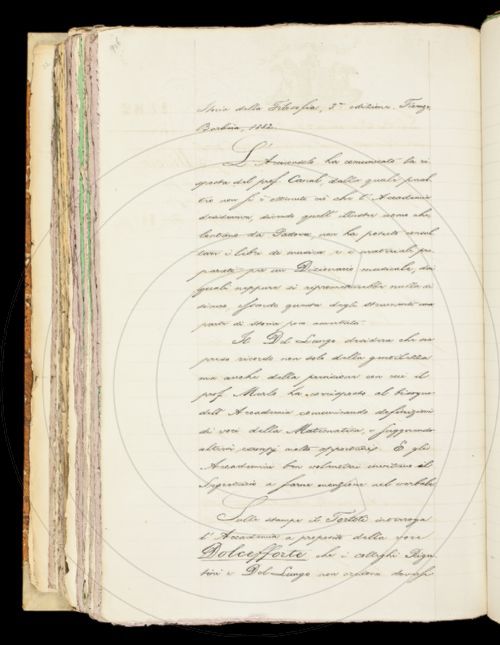 Storia della Filosofia, 3ª edizione. Firenze,
Barbèra, 1882.
L'Arciconsolo ha comunicato la ri-
sposta del prof. Canal, dalla quale peral-
tro non si è ottenuto ciò che l'Accademia
desiderava, dicendo quell'illustre uomo che
lontano da Padova, non ha potuto consul-
tare i libri di musica e i materiali pre-
parati per un Dizionario musicale, dai
quali neppure si riprometterebbe nulla di
sicuro, essendo questa degli strumenti una
parte di storia poco accertata.
Il Del Lungo desidera che sia
preso ricordo non solo della gentilezza
ma anche della precisione con cui il
prof. Merlo ha corrisposto al bisogno
dell'Accademia comunicando definizioni
di voci della Matematica, e suggerendo
alcuni esempi molto opportuni. E gli
Accademici ben volentieri invitano il
Segretario a farne menzione nel verbale.
Sulle stampe il Tortoli interroga
l'Accademia a proposito della voce
Dolcefforte che i colleghi Rigu-
tini e Del Lungo non credono doversi